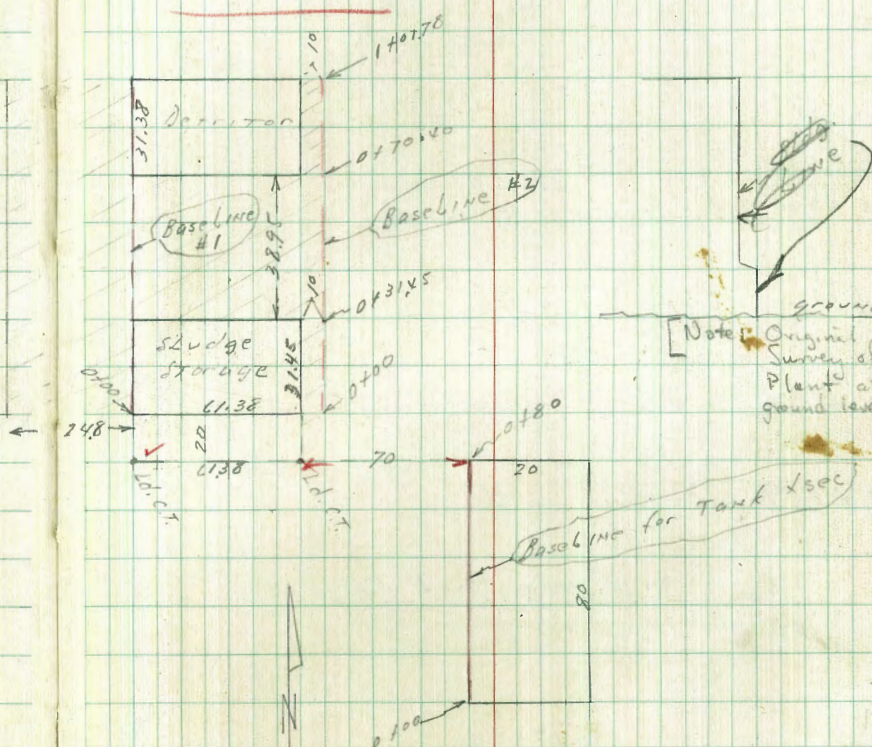 10
1+01.78
31.38
Detritor
0+70.40
Baseline
#1
Baseline #2
38.95
10
0+31.45
Sludge
Storage
31.45
0+00
0+00
61.38
248
20
61.38
70
Ld. C.T.
Ld. C.T.
0+80
20
Baseline for Tank Xsec
80
0+00
N
Bldg.
Line
ground
[Note: Original
Survey of
Plant at
ground level